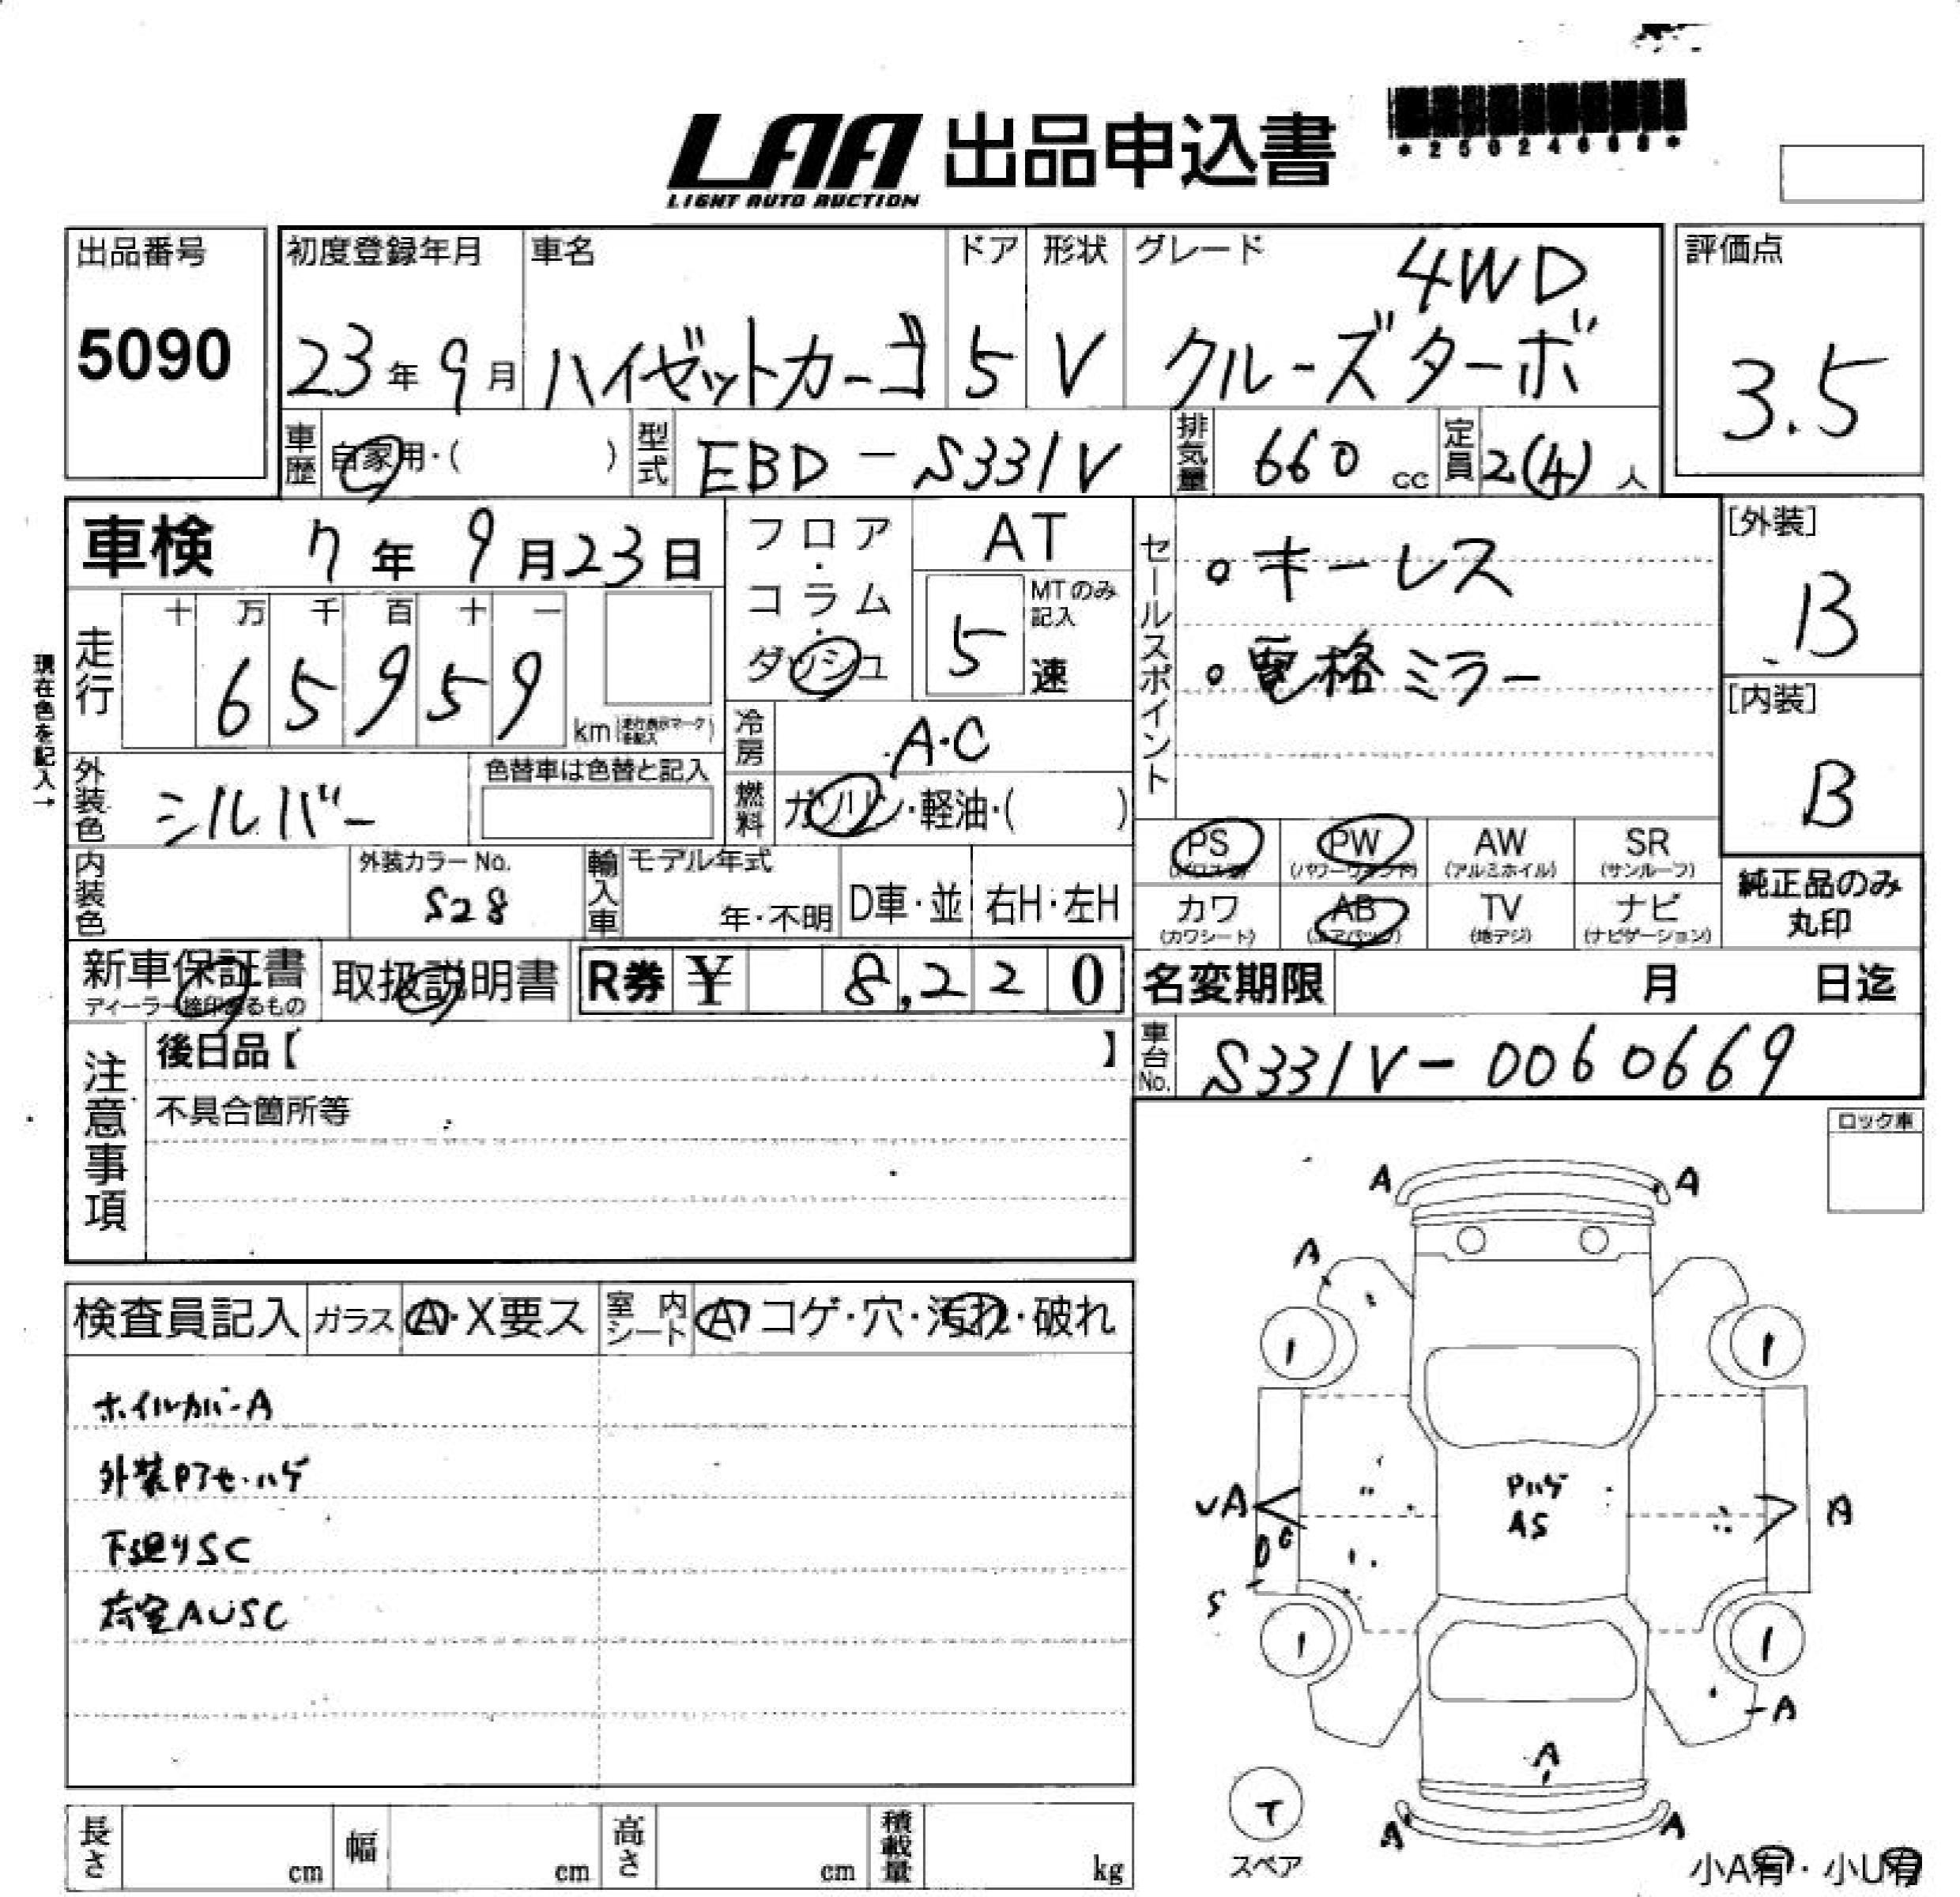 LAA 出品申込書
LIGHT AUTO AUCTION
出品番号
5090
初度登録年月
23年9月
車名
ハイゼットカーゴ
ドア
5
形状
V
グレード
4WD
クルーズターボ
評価点
3.5
車歴
自家用・( )
型式
EBD-S331V
排気量
660 cc
定員
2(4)人
車検 7年9月23日
フロア・コラム・ダッシュ
AT
MTのみ記入
5速
セールスポイント
○キーレス
○電格ミラー
[外装]
B
[内装]
B
現在色を記入→
走行
十 万 千 百 十 一
65959
km
冷房
A・C
外装色
シルバー
色替車は色替と記入
燃料
ガソリン・軽油・( )
内装色
外装カラーNo.
S28
輸入車
モデル年式
年・不明
D車・並
右H・左H
PS
PW
(パワーウィンド)
AW
(アルミホイル)
SR
(サンルーフ)
カワ
(カワシート)
AB
(エアバッグ)
TV
(地デジ)
ナビ
(ナビゲーション)
純正品のみ丸印
新車保証書
ディーラー捺印あるもの
取扱説明書
R券 ¥ 8,220
名変期限 月 日迄
注意事項
後日品【 】
不具合箇所等
車台No.
S331V-0060669
ロック車
検査員記入
ガラス
A・X要ス
室内シート
A コゲ・穴・汚れ・破れ
ホイルカバーA
外装Pアセ・ハゲ
下廻りSC
荷室AUSC
A
A
A
1
1
PハゲAS
UA
A
S
1
1
A
A
A
A
T
スペア
小A有・小U有
長さ cm
幅 cm
高さ cm
積載量 kg